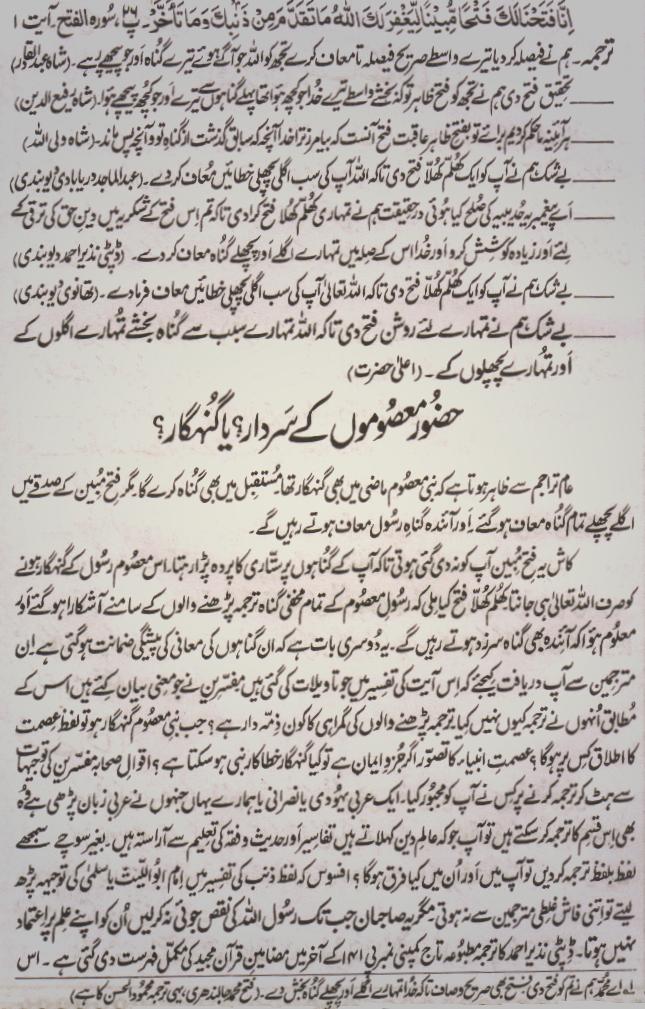 اِنَّا فَتَحْنَا لَكَ فَتْحًا مُّبِيْنًا لِّيَغْفِرَ لَكَ اللهُ مَا تَقَدَّمَ مِنْ ذَنْۢبِكَ وَمَا تَاَخَّرَ۔ پ ۲۶، سُورہ الفتح۔ آیت ۱
ترجمہ۔ ہم نے فیصلہ کر دیا تیرے واسطے صریح فیصلہ تا معاف کرے تجھ کو اللہ جو آگے ہوئے تیرے گناہ اور جو پیچھے رہے۔ (شاہ عبدالقادر)
——— تحقیق فتح دی ہم نے تجھ کو فتح ظاہر تو کہ بخشے واسطے تیرے خُدا جو کچھ ہوا تھا پہلے گناہوں سے تیرے اور جو کچھ پیچھے ہوا۔ (شاہ رفیع الدین)
——— ہر آئینہ ما حکم کردیم برائے تو بفتح ظاہر عاقبت فتح آنست کہ بیامرزد ترا خدا آنچہ کہ سابق گذشت از گناہ تو و آنچہ پس ماند۔ (شاہ ولی اللہ)
——— بے شک ہم نے آپ کو ایک کھُلّم کھُلّا فتح دی تاکہ اللہ آپ کی سب اگلی پچھلی خطائیں معُاف کر دے۔ (عبدالماجد دریابادی دیوبندی)
——— اَے پیغمبر یہ حُدیبیہ کی صُلح کیا ہُوئی در حقیقت ہم نے تمہاری کھُلّم کھُلّا فتح کرا دی تاکہ تم اِس فتح کے شکریہ میں دینِ حق کی ترقی کے
لئے اَور زیادہ کوشش کرو اَور خُدا اس کے صِلہ میں تمہارے اگلے اَور پچھلے گناہ معاف کر دے۔ (ڈپٹی نذیر احمد دیوبندی)
——— بے شک ہم نے آپ کو ایک کھُلّم کھُلّا فتح دی تاکہ اللہ تعالیٰ آپ کی سب اگلی پچھلی خطائیں معاف فرما دے۔ (تھانوی دیوبندی)
——— بے شک ہم نے تمہارے لئے روشن فتح دی تاکہ اللہ تمہارے سبب سے گُناہ بخشے تُمہارے اگلوں کے
اَور تمُہارے پچھلوں کے۔ (اعلیٰ حضرت)
حضُور معصُوموں کے سَردار؟ یا گُنہگار؟
عام تراجم سے ظاہر ہوتا ہے کہ نبی معصُوم ماضی میں بھی گنہگار تھا مُستقبِل میں بھی گُناہ کرے گا۔ مگر فتحِ مُبین کے صدقے میں
اگلے پچھلے تمام گُناہ معاف ہو گئے۔ اَور آئندہ گناہِ رسُول معاف ہوتے رہیں گے۔
کاش یہ فتحِ مُبین آپ کو نہ دی گئی ہوتی تاکہ آپ کے گُناہوں پر ستّاری کا پردہ پڑا رہتا۔ اس معصُوم رسول کے گنہگار ہونے
کو صرف اللہ تعالیٰ ہی جانتا۔ کھُلم کھُلّا فتح کیا ملی کہ رسُولِ معصُوم کے تمام مخفی گناہ ترجمہ پڑھنے والوں کے سامنے آشکارا ہو گئے اَور
معلُوم ہُوا کہ آئندہ بھی گُناہ سرزد ہوتے رہیں گے۔ یہ دُوسری بات ہے کہ ان گُناہوں کی معافی کی پیشگی ضمانت ہو گئی ہے اِن
مترجمین سے آپ دریافت کیجئے کہ اِس آیت کی تفسیر میں جو تاویلات کی گئی ہیں مفسّرین نے جو معنی بیان کئے ہیں اس کے
مُطابق اُنہوں نے ترجمہ کیوں نہیں کیا۔ ترجمہ پڑھنے والوں کی گمراہی کا کون ذمّہ دار ہے؟ جب نبی معصُوم گنہگار ہو تو لفظِ عصمت
کا اطلاق کس پر ہوگا؟ عصمتِ انبیاء کا تصوّر اگر جُزوِ ایمان ہے تو کیا گنہگار خطا کار نبی ہو سکتا ہے؟ اقوالِ صحابہ مفسّرین کی توجیہات
سے ہٹ کر ترجمہ کرنے پر کس نے آپ کو مجبُور کیا۔ ایک عربی یہُودی یا نصرانی یا ہمارے یہاں جنہوں نے عربی زبان پڑھی ہے وُہ
بھی اِس قسم کا ترجمہ کر سکتے ہیں تو آپ جو کہ عالِمِ دین کہلاتے ہیں تفاسیر اَور حدیث و فقہ کی تعلیم سے آراستہ ہیں۔ بغیر سوچے سمجھے
لفظ بلفظ ترجمہ کر دیں تو آپ میں اَور اُن میں کیا فرق ہوگا؟ افسوس کہ لفظ ذنب کی تفسیر میں اِمام ابُو اللّیث یا سلمیٰ کی توجیہہ پڑھ
لیتے تو اِتنی فاش غلطی مترجمین سے نہ ہوتی۔ مگر یہ صاحبان جب تک رسُول اللہ کی نقص جوئی نہ کر لیں اُن کو اپنے علم پر اعتماد
نہیں ہوتا۔ ڈپٹی نذیر احمد کا ترجمہ مطبُوعہ تاج کمپنی نمبر پی ۱۴۱ کے آخر میں مضامینِ قرآن مجید کی مکمّل فہرست دی گئی ہے۔ اس
۱۔ اے محمّد ہم نے تم کو فتح دی، فتح بھی صریح و صاف تاکہ خُدا تمہارے اگلے اَور پچھلے گناہ بخش دے۔ (فتح محمّد جالندھری، یہی ترجمہ محمُود الحسن کا ہے)